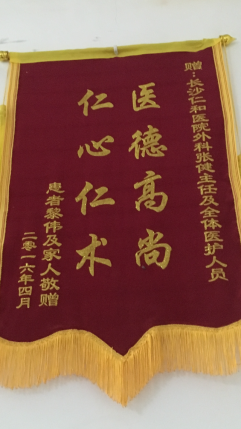 赠：长沙仁和医院外科张健主任及全体医护人员
医德高尚
仁心仁术
患者黎伟及家人敬赠
二零一六年四月